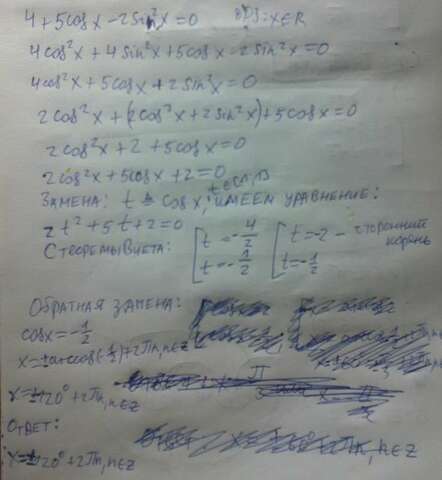 4+5cosx-2sin²x=0 ОДЗ: x∈R
4cos²x+4sin²x+5cosx-2sin²x=0
4cos²x+5cosx+2sin²x=0
2cos²x+(2cos²x+2sin²x)+5cosx=0
2cos²x+2+5cosx=0
2cos²x+5cosx+2=0
ЗАМЕНА: t = cosx, t∈[-1,1] ИМЕЕМ УРАВНЕНИЕ:
2t²+5t+2=0
С ТЕОРЕМЫ ВИЕТА: [t=-4/2 t=-1/2 [t=-2 - сторонний корень t=-1/2
ОБРАТНАЯ ЗАМЕНА:
cosx=-1/2
x=±arccos(-1/2)+2πn, n∈Z
x=±120°+2πn, n∈Z
ОТВЕТ:
x=±120°+2πn, n∈Z